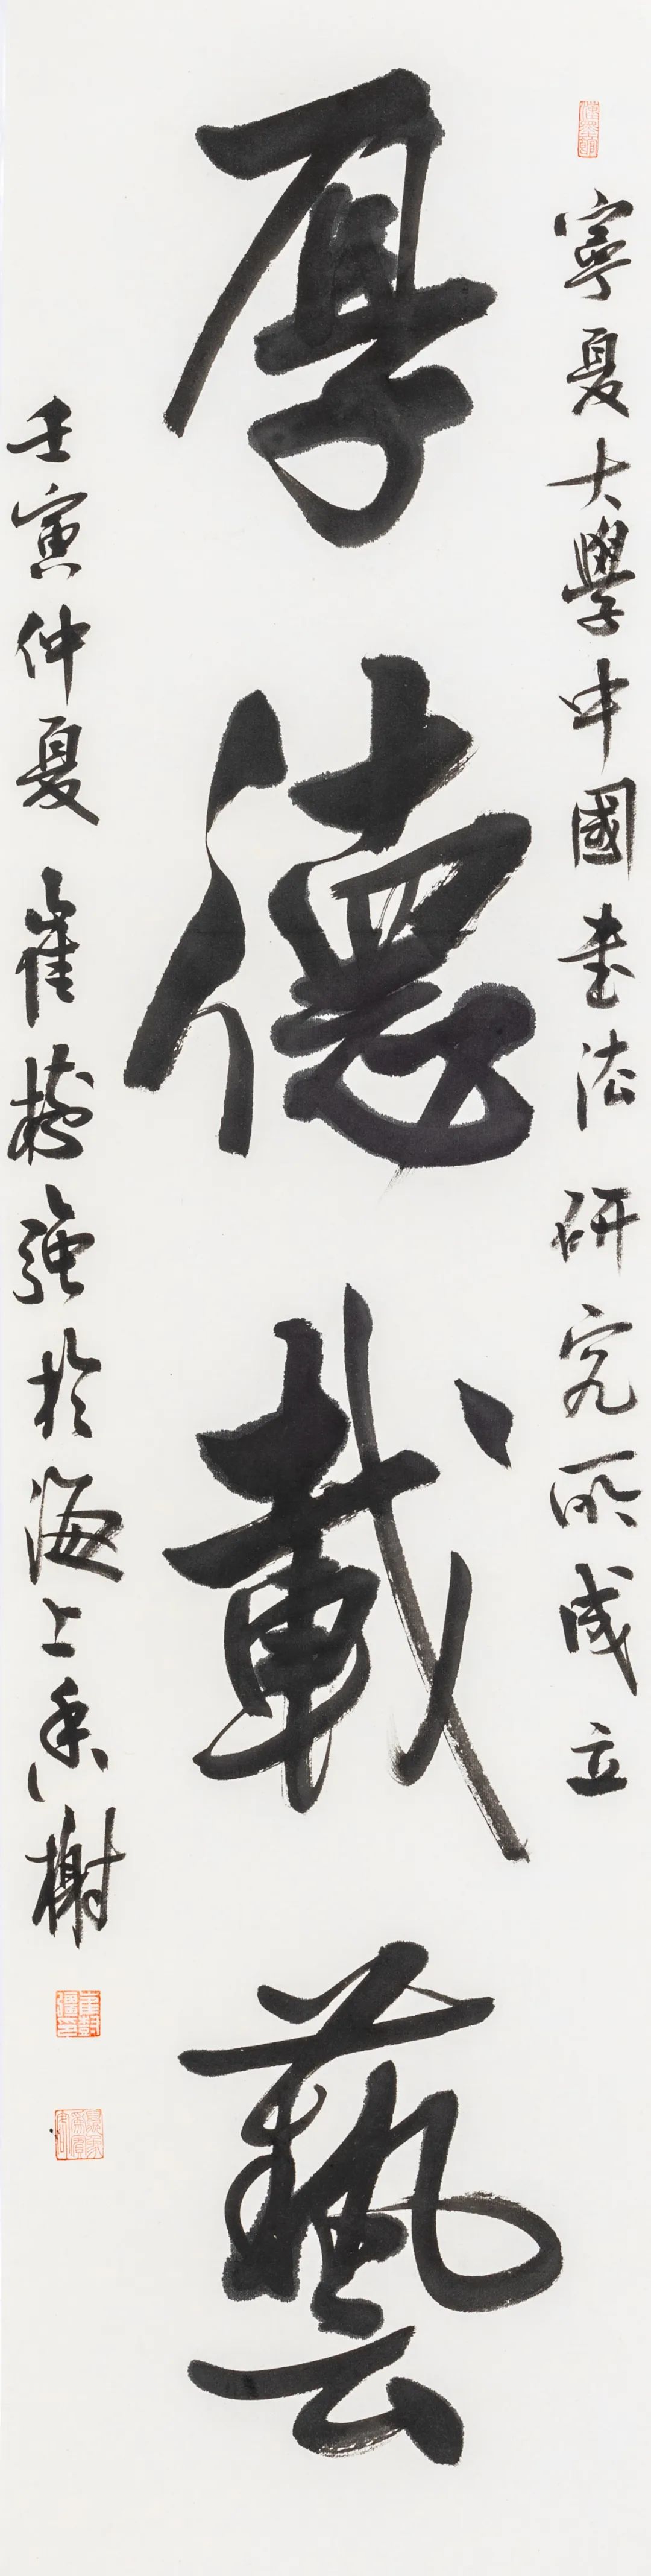 寧夏大學中國書法研究所成立
厚德載藝
壬寅仲夏崔樹強於海上香榭